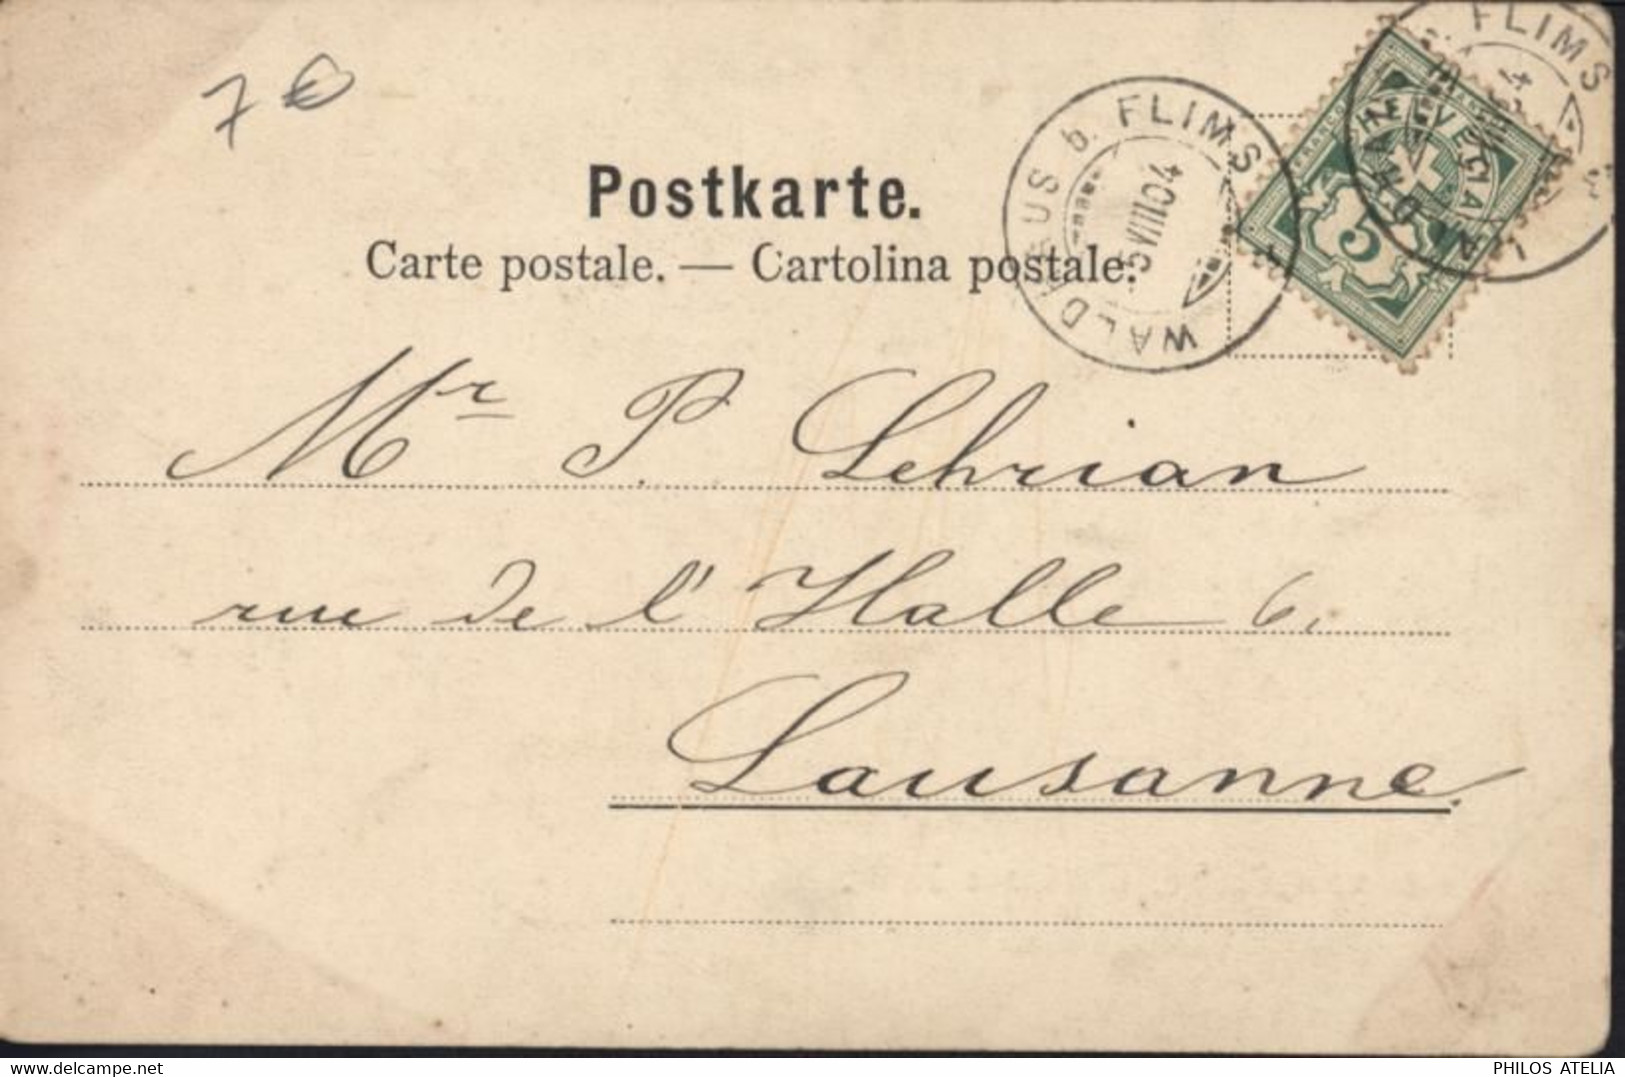 7 €
Postkarte.
Carte postale. — Cartolina postale.
WALDHAUS b. FLIMS
5 VIII 04
FRANCO
HELVETIA
5
WALDHAUS b. FLIMS
Mr P. Lehrian
rue de l'Halle 6.
Lausanne.
www.delcampe.net
PHILOS ATELIA